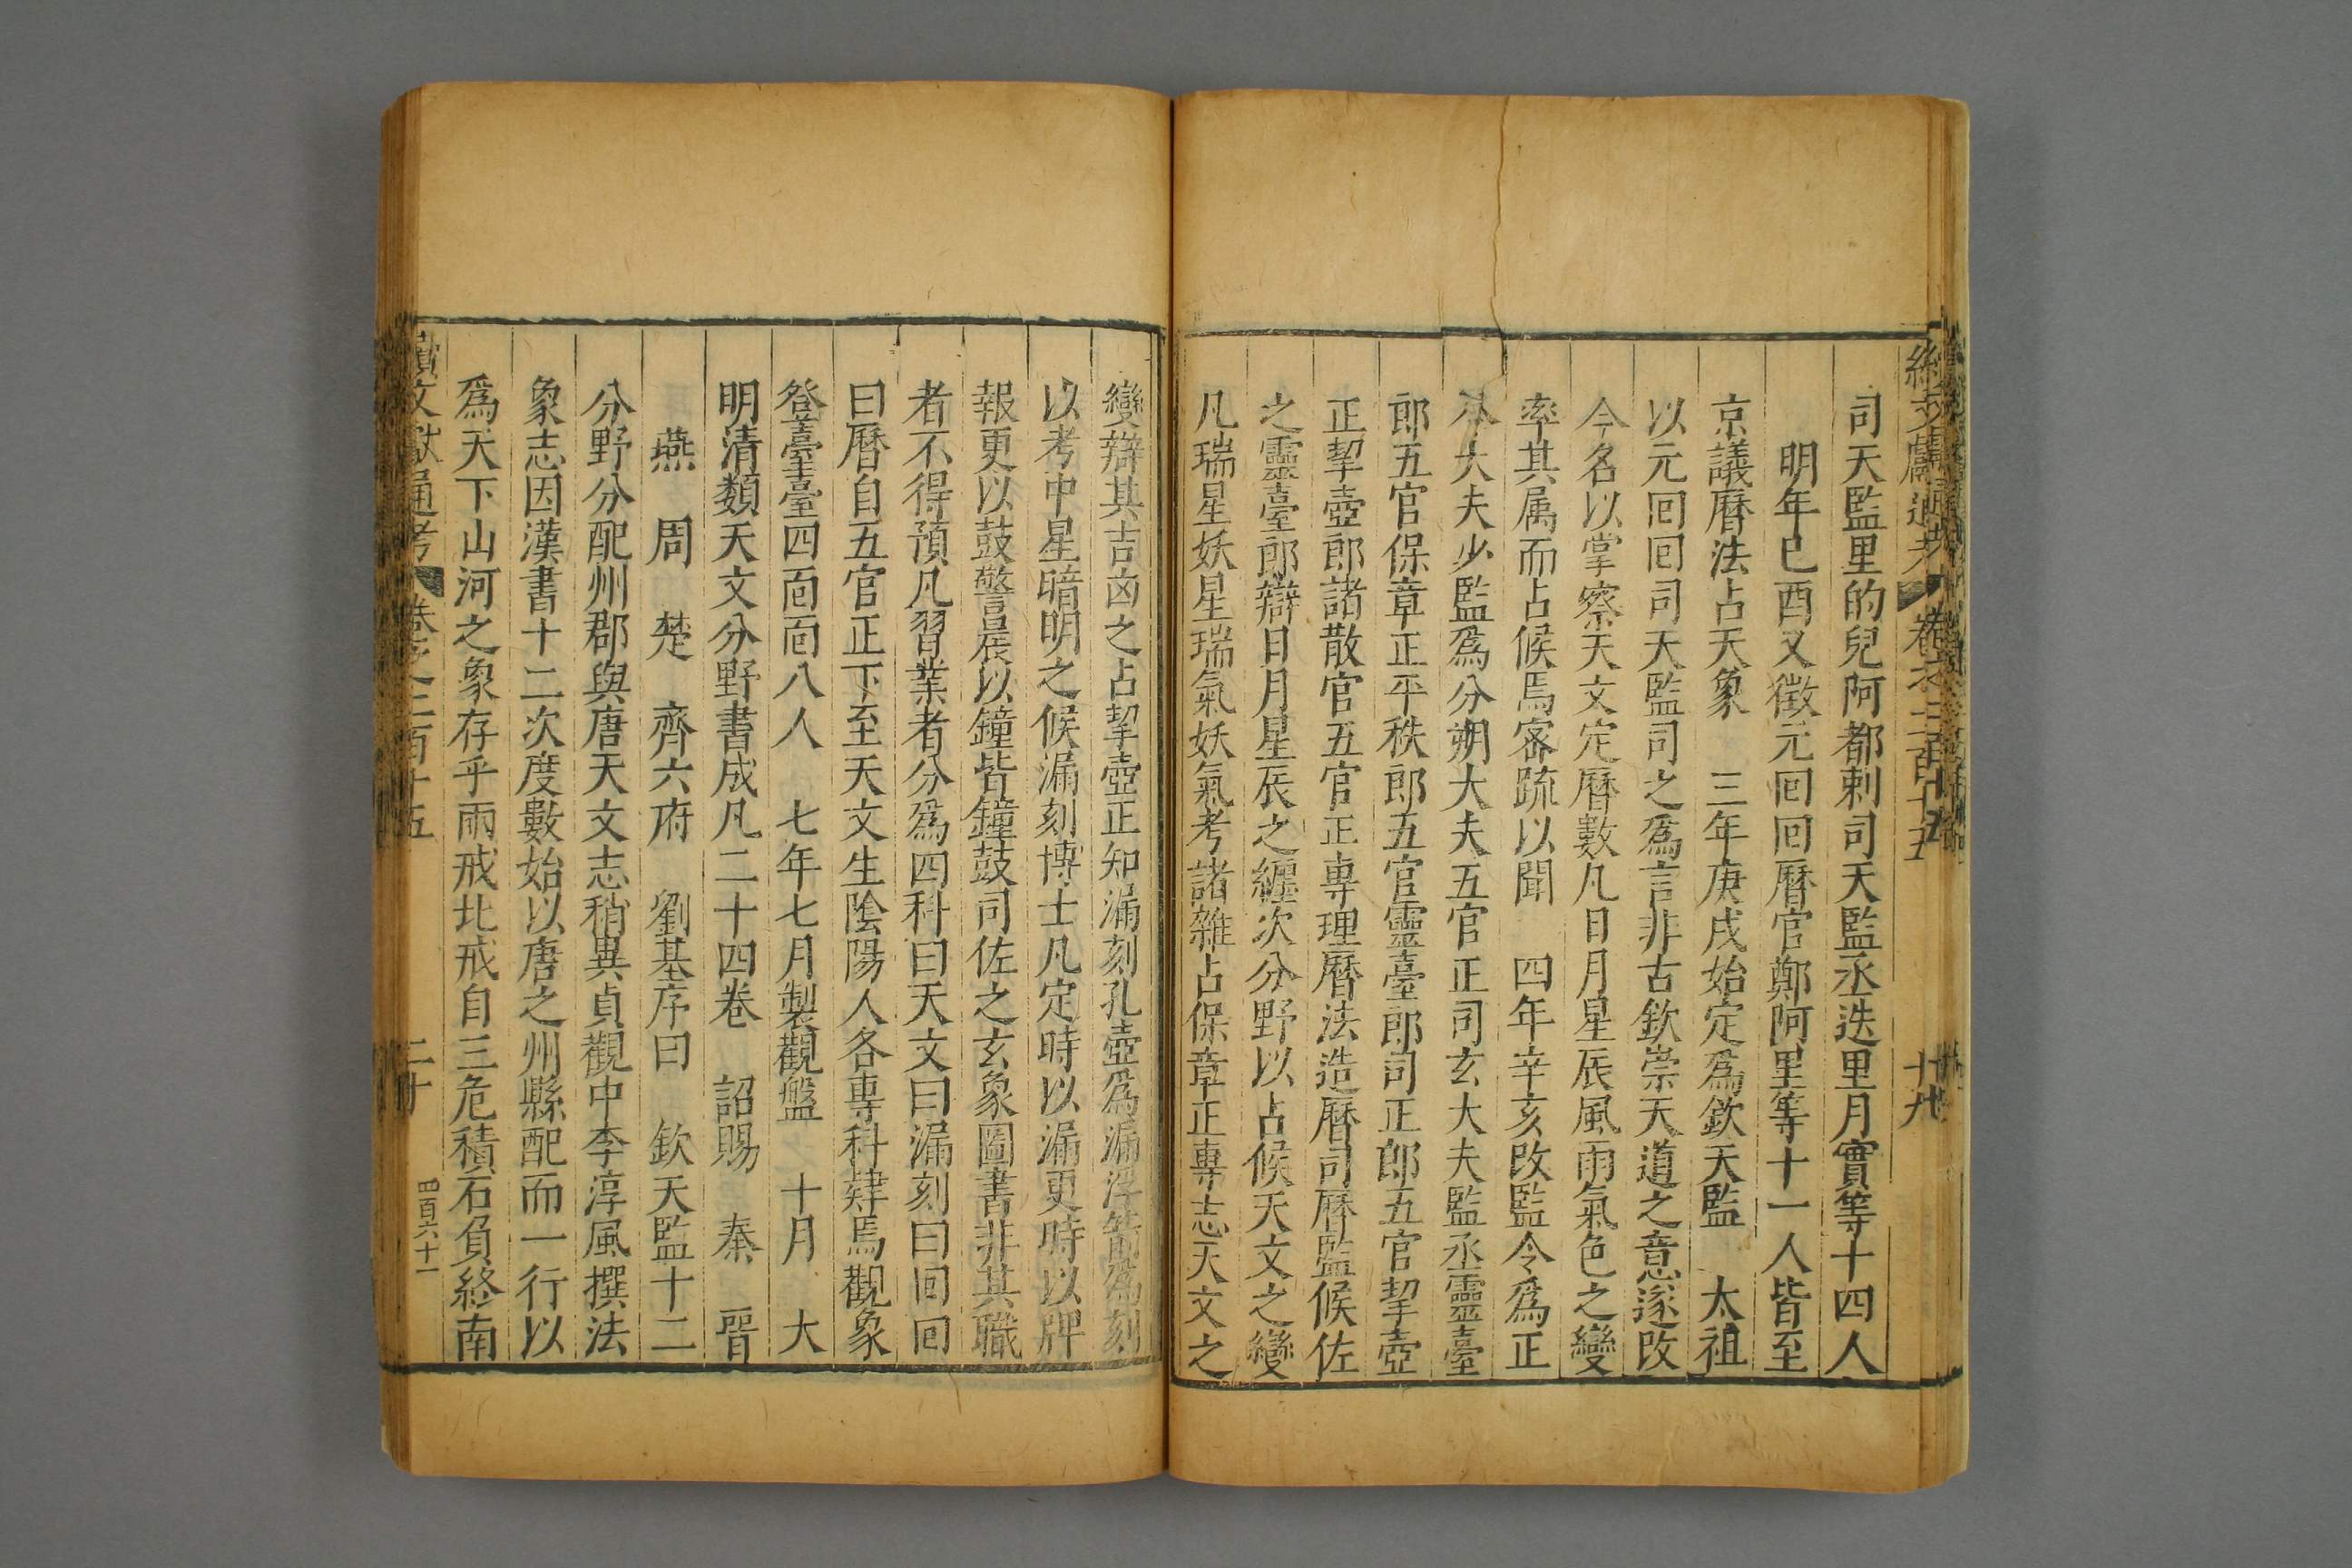 續文獻通考 卷之二百十五 十九
司天監里的兒阿都剌司天監丞迭里月實等十四人
明年已酉又徵元回回曆官鄭阿里等十一人皆至
京議曆法占天象 三年庚戌始定爲欽天監 太祖
以元回回司天監司之爲言非古欽崇天道之意遂改
今名以掌察天文定曆數凡日月星辰風雨氣色之變
率其属而占候焉密疏以聞 四年辛亥改監令爲正
大夫少監爲分朔大夫五官正司玄大夫監丞靈臺
郎五官保章正平秩郎五官靈臺郎司正郎五官挈壺
正挈壺郎諸散官五官正專理曆法造曆司曆監候佐
之靈臺郎辯日月星辰之纏次分野以占候天文之變
凡瑞星妖星瑞氣妖氣考諸雜占保章正專志天文之
變辯其吉凶之占挈壺正知漏刻孔壺爲漏浮箭爲刻
以考中星暗明之候漏刻博士凡定時以漏更時以牌
報更以鼓警晨以鐘皆鐘鼓司佐之玄象圖書非其職
者不得預凡習業者分爲四科曰天文曰漏刻曰回回
曰曆自五官正下至天文生陰陽人各專科肄焉觀象
登臺臺四面面八人 七年七月製觀盤 十月 大
明清類天文分野書成凡二十四卷 詔賜 秦 晉
燕 周 楚 齊六府 劉基序曰 欽天監十二
分野分配州郡與唐天文志稍異貞觀中李淳風撰法
象志因漢書十二次度數始以唐之州縣配而一行以
爲天下山河之象存乎兩戒北戒自三危積石負終南
續文獻通考 卷之二百十五 二十
四百六十一